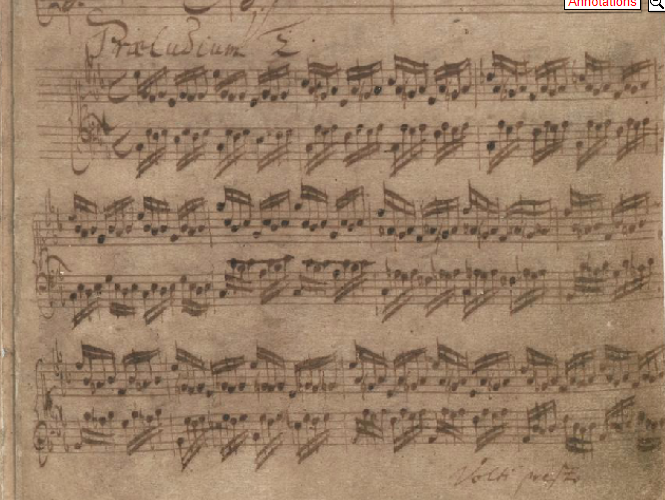 Annotations
Præludium 2.
Volti presto